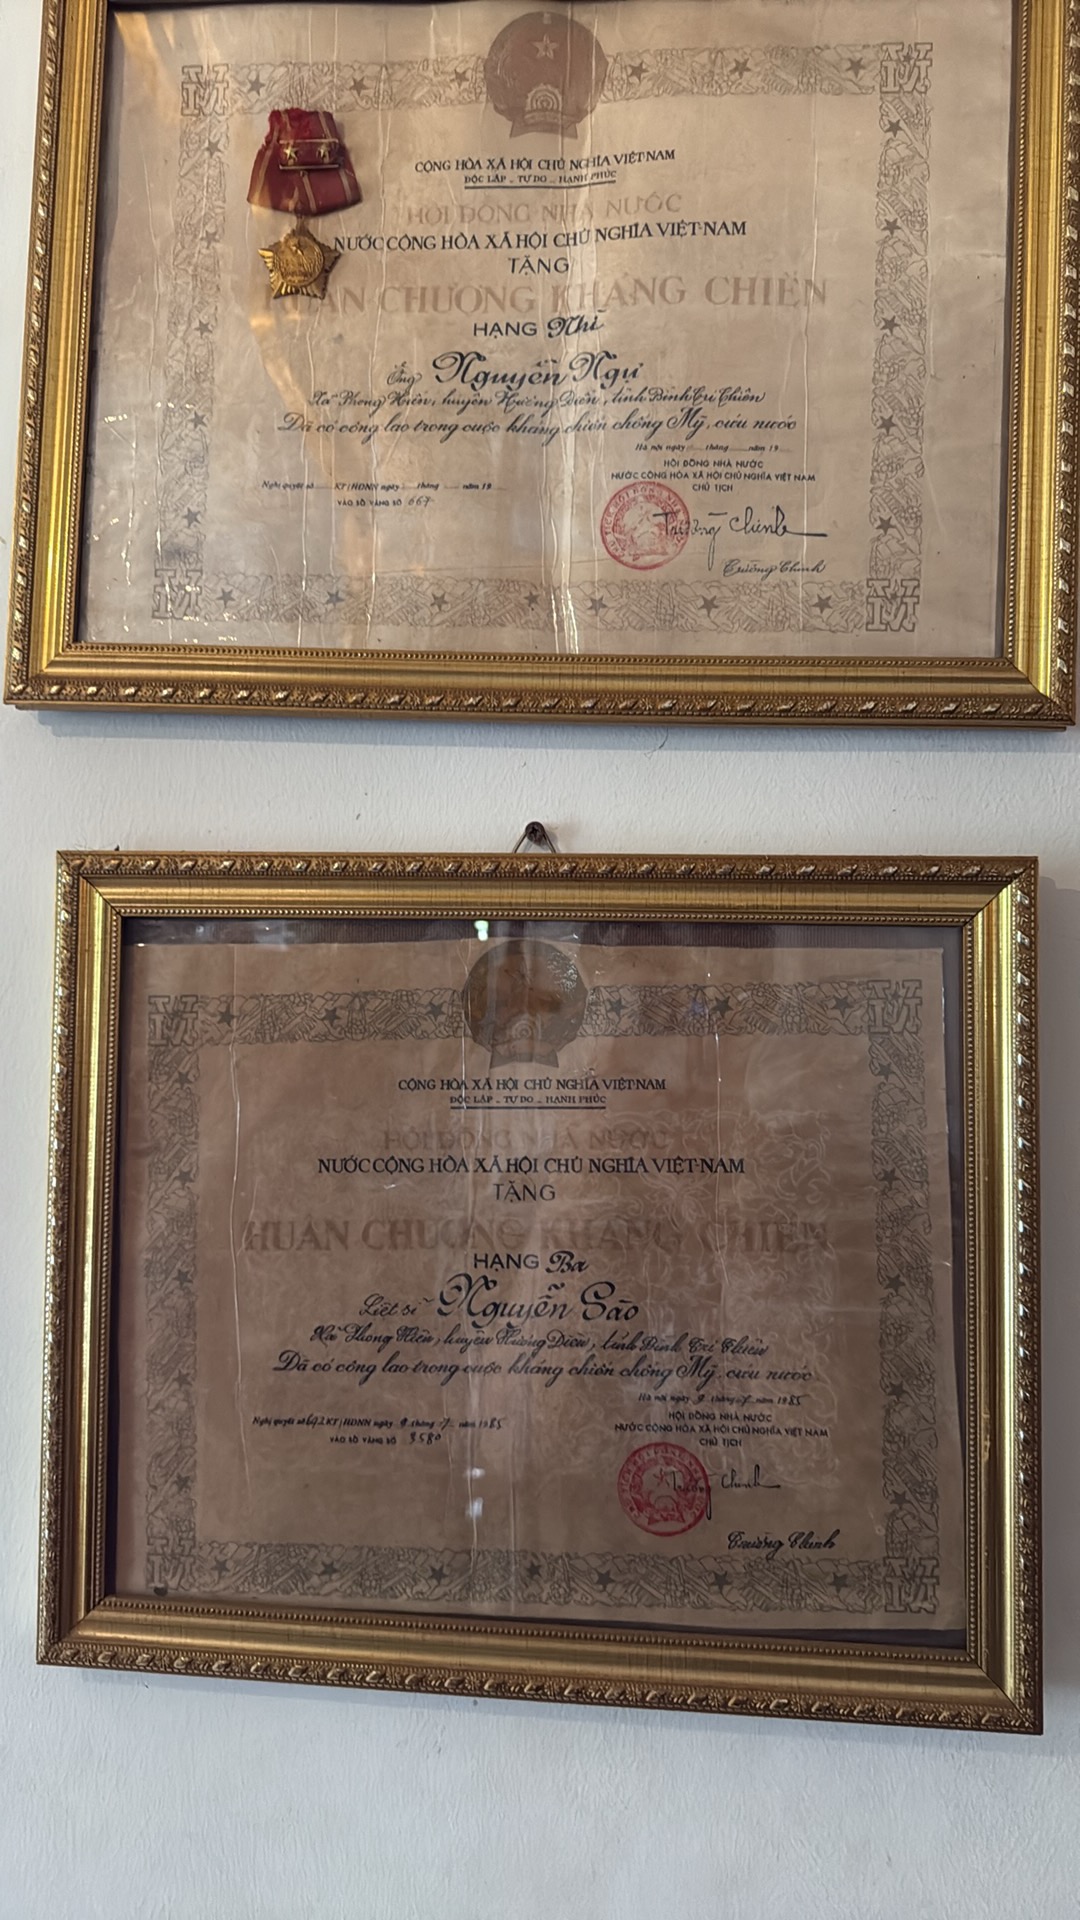 CỘNG HÒA XÃ HỘI CHỦ NGHĨA VIỆT NAM
ĐỘC LẬP - TỰ DO - HẠNH PHÚC
HỘI ĐỒNG NHÀ NƯỚC
NƯỚC CỘNG HÒA XÃ HỘI CHỦ NGHĨA VIỆT NAM
TẶNG
HUÂN CHƯƠNG KHÁNG CHIẾN
HẠNG Nhì
Ông Nguyễn Ngự
Xã Phong Hiền, huyện Hương Điền, tỉnh Bình Trị Thiên
Đã có công lao trong cuộc kháng chiến chống Mỹ, cứu nước
Hà nội ngày tháng năm 19
HỘI ĐỒNG NHÀ NƯỚC
NƯỚC CỘNG HÒA XÃ HỘI CHỦ NGHĨA VIỆT NAM
CHỦ TỊCH
Nghị quyết số KT/HĐNN ngày tháng năm 19
VÀO SỔ VÀNG SỐ 667
Trường Chinh
Trường Chinh
CỘNG HÒA XÃ HỘI CHỦ NGHĨA VIỆT NAM
ĐỘC LẬP - TỰ DO - HẠNH PHÚC
HỘI ĐỒNG NHÀ NƯỚC
NƯỚC CỘNG HÒA XÃ HỘI CHỦ NGHĨA VIỆT NAM
TẶNG
HUÂN CHƯƠNG KHÁNG CHIẾN
HẠNG Ba
Liệt sĩ Nguyễn Sáo
Xã Phong Hiền, huyện Hương Điền, tỉnh Bình Trị Thiên
Đã có công lao trong cuộc kháng chiến chống Mỹ, cứu nước
Hà nội ngày 9 tháng 7 năm 1985
HỘI ĐỒNG NHÀ NƯỚC
NƯỚC CỘNG HÒA XÃ HỘI CHỦ NGHĨA VIỆT NAM
CHỦ TỊCH
Nghị quyết số 692 KT/HĐNN ngày 9 tháng 7 năm 1985
VÀO SỔ VÀNG SỐ 3580
Trường Chinh
Trường Chinh